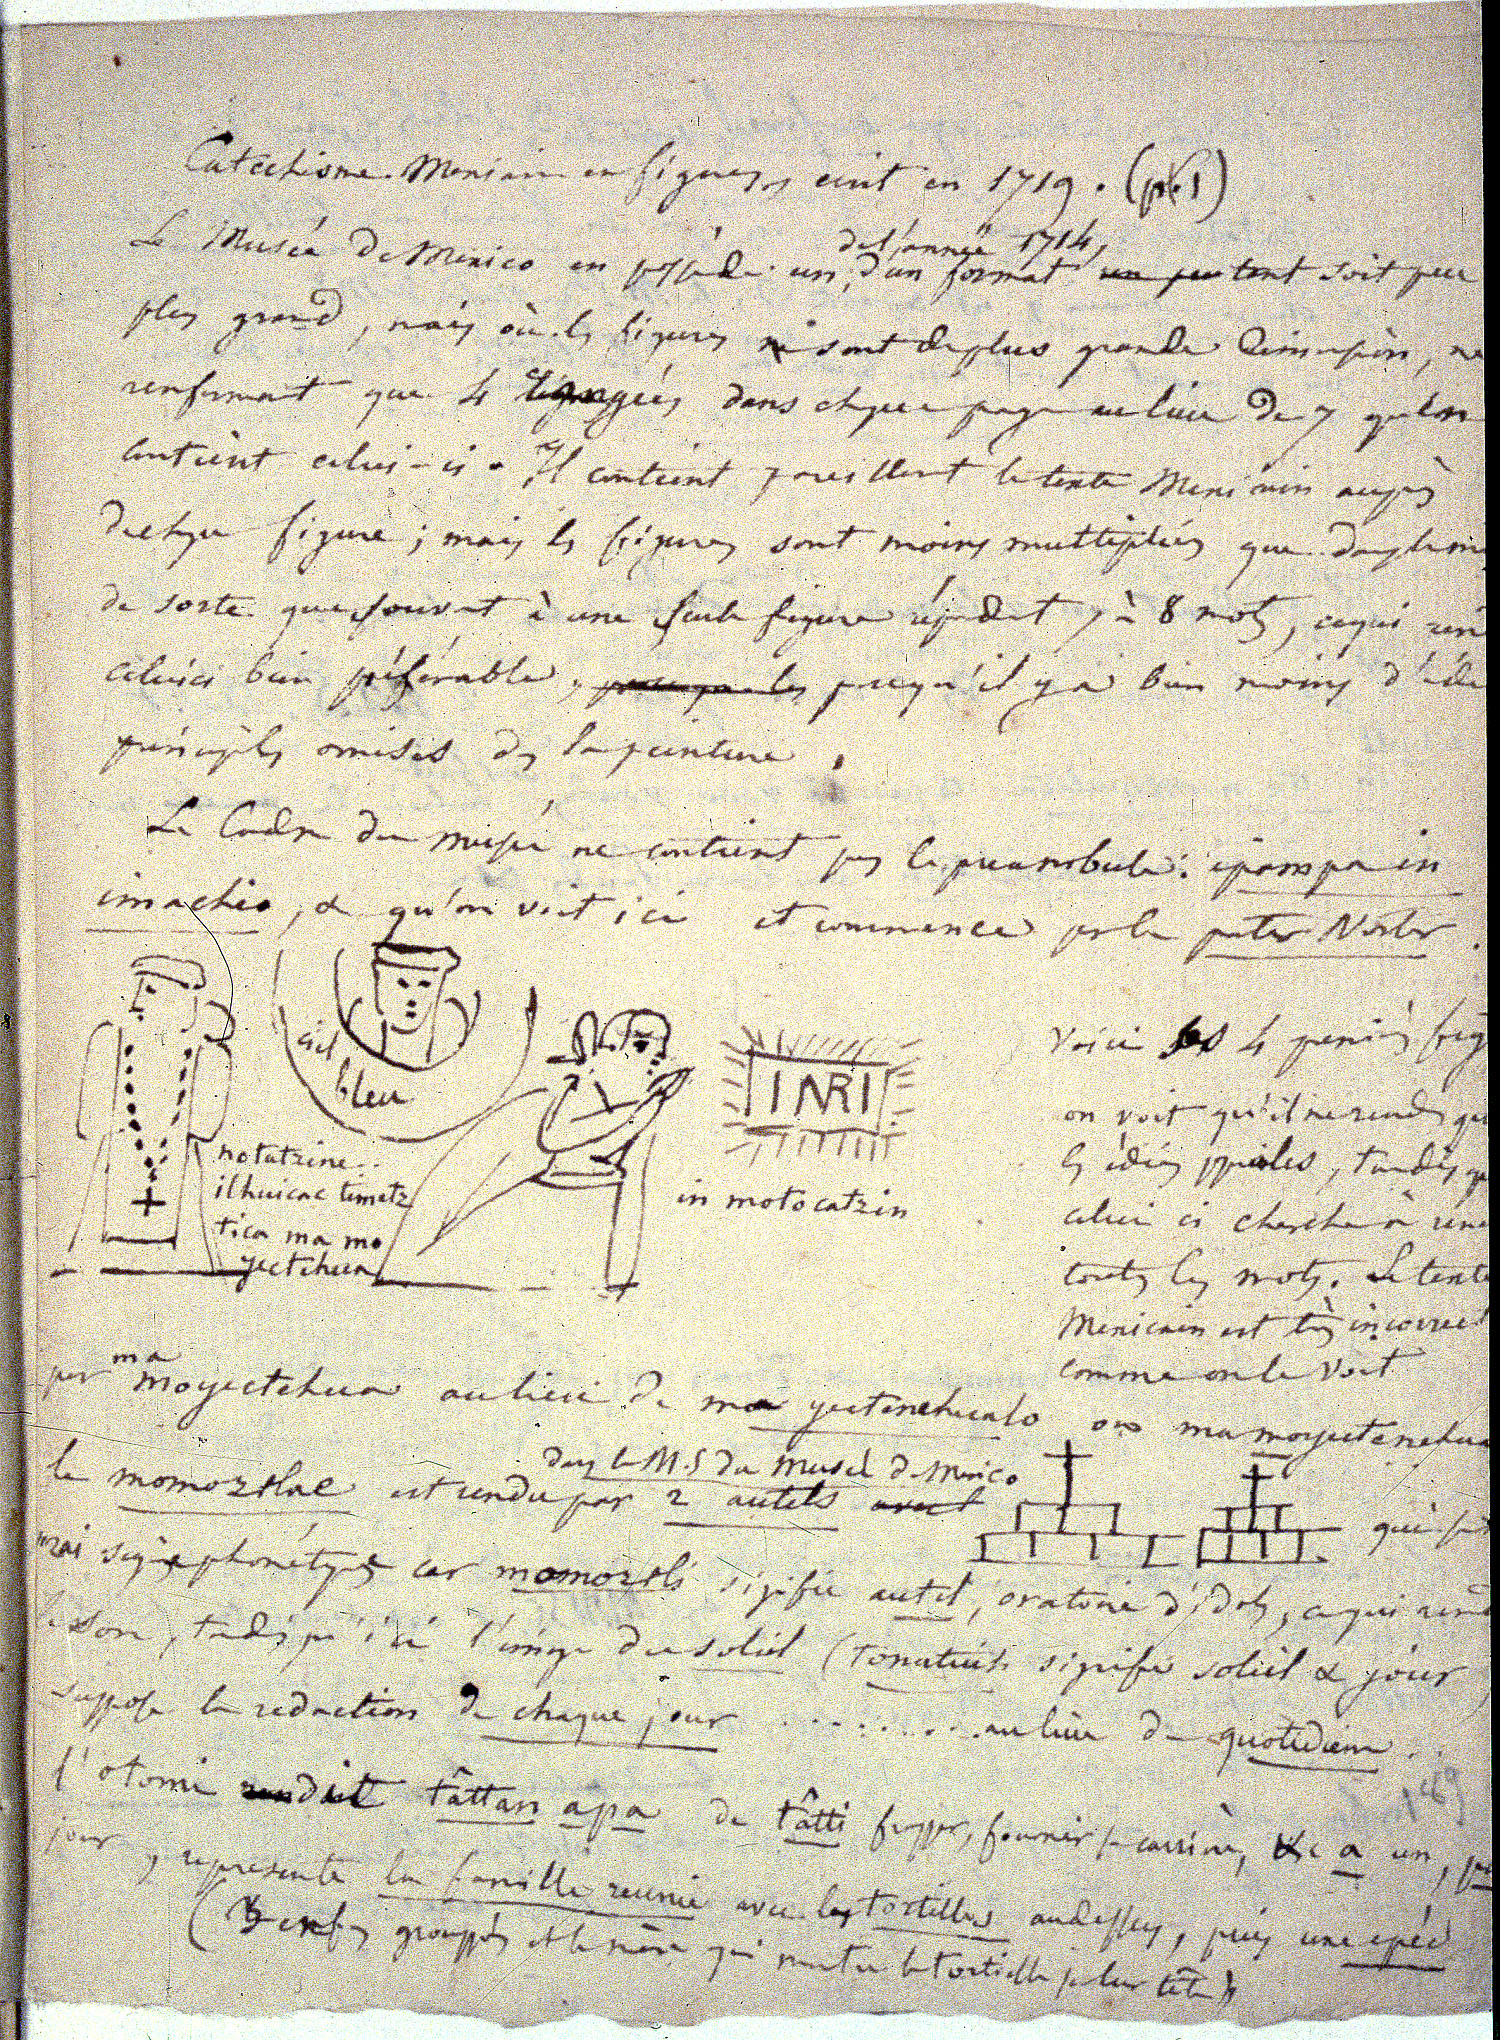 Catéchisme Mexicain en figures, écrit en 1719. (pl. 1)
de l'année 1714,
Le Musée de Mexico en possède un, d'un format un peu tant soit peu
plus grand, mais où les figures sont de plus grande dimension, ne
renfermant que 4 rangées dans chque page au lieu de 7 qu'en
contient celui-ci. Il contient pareillemt le texte Mexicain auprès
de chque figure; mais les figures sont moins multipliées que dans
de sorte que souvent à une seule figure répondent 7 à 8 mots, ce qui
celui ci bien préférable, puisqu'il y a bien moins d'
principles omises ds la peinture.
Le Cadre du musée ne contient pas le préambule: ipampa in
imachio, & qu'on voit ici et commence par le pater Noster.
ciel
bleu
INRI
notatzine..
ilhuicac timetz
tica ma mo
yectehua
in motocatzin
Voici les 4 premières fig
on voit qu'il ne rend que
les idées ppales, tandis que
celui ci cherche à
toutes les mots. Le texte
Mexicain est très incorrect
comme on le voit
ma
par moyectehua au lieu de ma yectenehualo ou ma moyectenehua
dans le M.S du Musée de Mexico
le momoztlae est rendu par 2 autels avect
qui
vrai signe phonétique car momoztli signifie autel, oratoire d'idoles, ce qui rend
le son, tandis qu'ici l'image du soleil (tonatiuh signifie soleil & jour)
suppose la rédaction de chaque jour ......... au lieu de quotidien..
149
l'otomi rendait tâttan apa de tâtti frapper, fournir sa carrière, &c a un,
jour, représente la famille réunie avec les tortilles au dessus, puis une épée
(3 enfs groupés et la mère qui met la tortille sur leur tête)